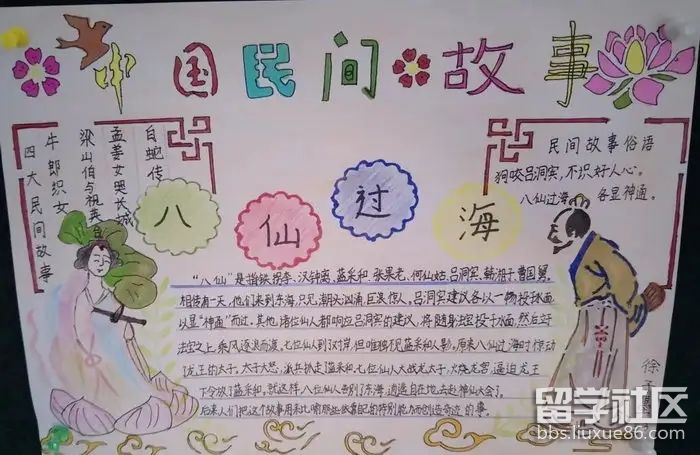 中国民间故事
四大民间故事
牛郎织女
梁山伯与祝英台
孟姜女哭长城
白蛇传
八仙过海
民间故事俗语
狗咬吕洞宾，不识好人心。
八仙过海，各显神通。
“八仙”是指铁拐李、汉钟离、蓝采和、张果老、何仙姑、吕洞宾、韩湘子、曹国舅。
相传有一天，他们来到东海，只见潮头汹涌，巨浪惊人。吕洞宾建议各以一物投于水面，
以显“神通”而过。其他诸位仙人都响应吕洞宾的建议，将随身法宝投于水面，然后立于
法宝之上，乘风逐浪而渡。七位仙人到对岸，但唯独不见蓝采和人影。原来八仙过海时惊动
龙王的太子，太子大怒，派兵抓走了蓝采和，七位仙人大战龙太子，火烧龙宫，逼迫龙王
下令放了蓝采和。就这样，八位仙人告别了东海，逍遥自在地去赴神仙大会了。
后来人们把这个故事用来比喻那些依靠自己的特别能力而创造奇迹的事。
徐
留学社区
bbs.liuxue86.com